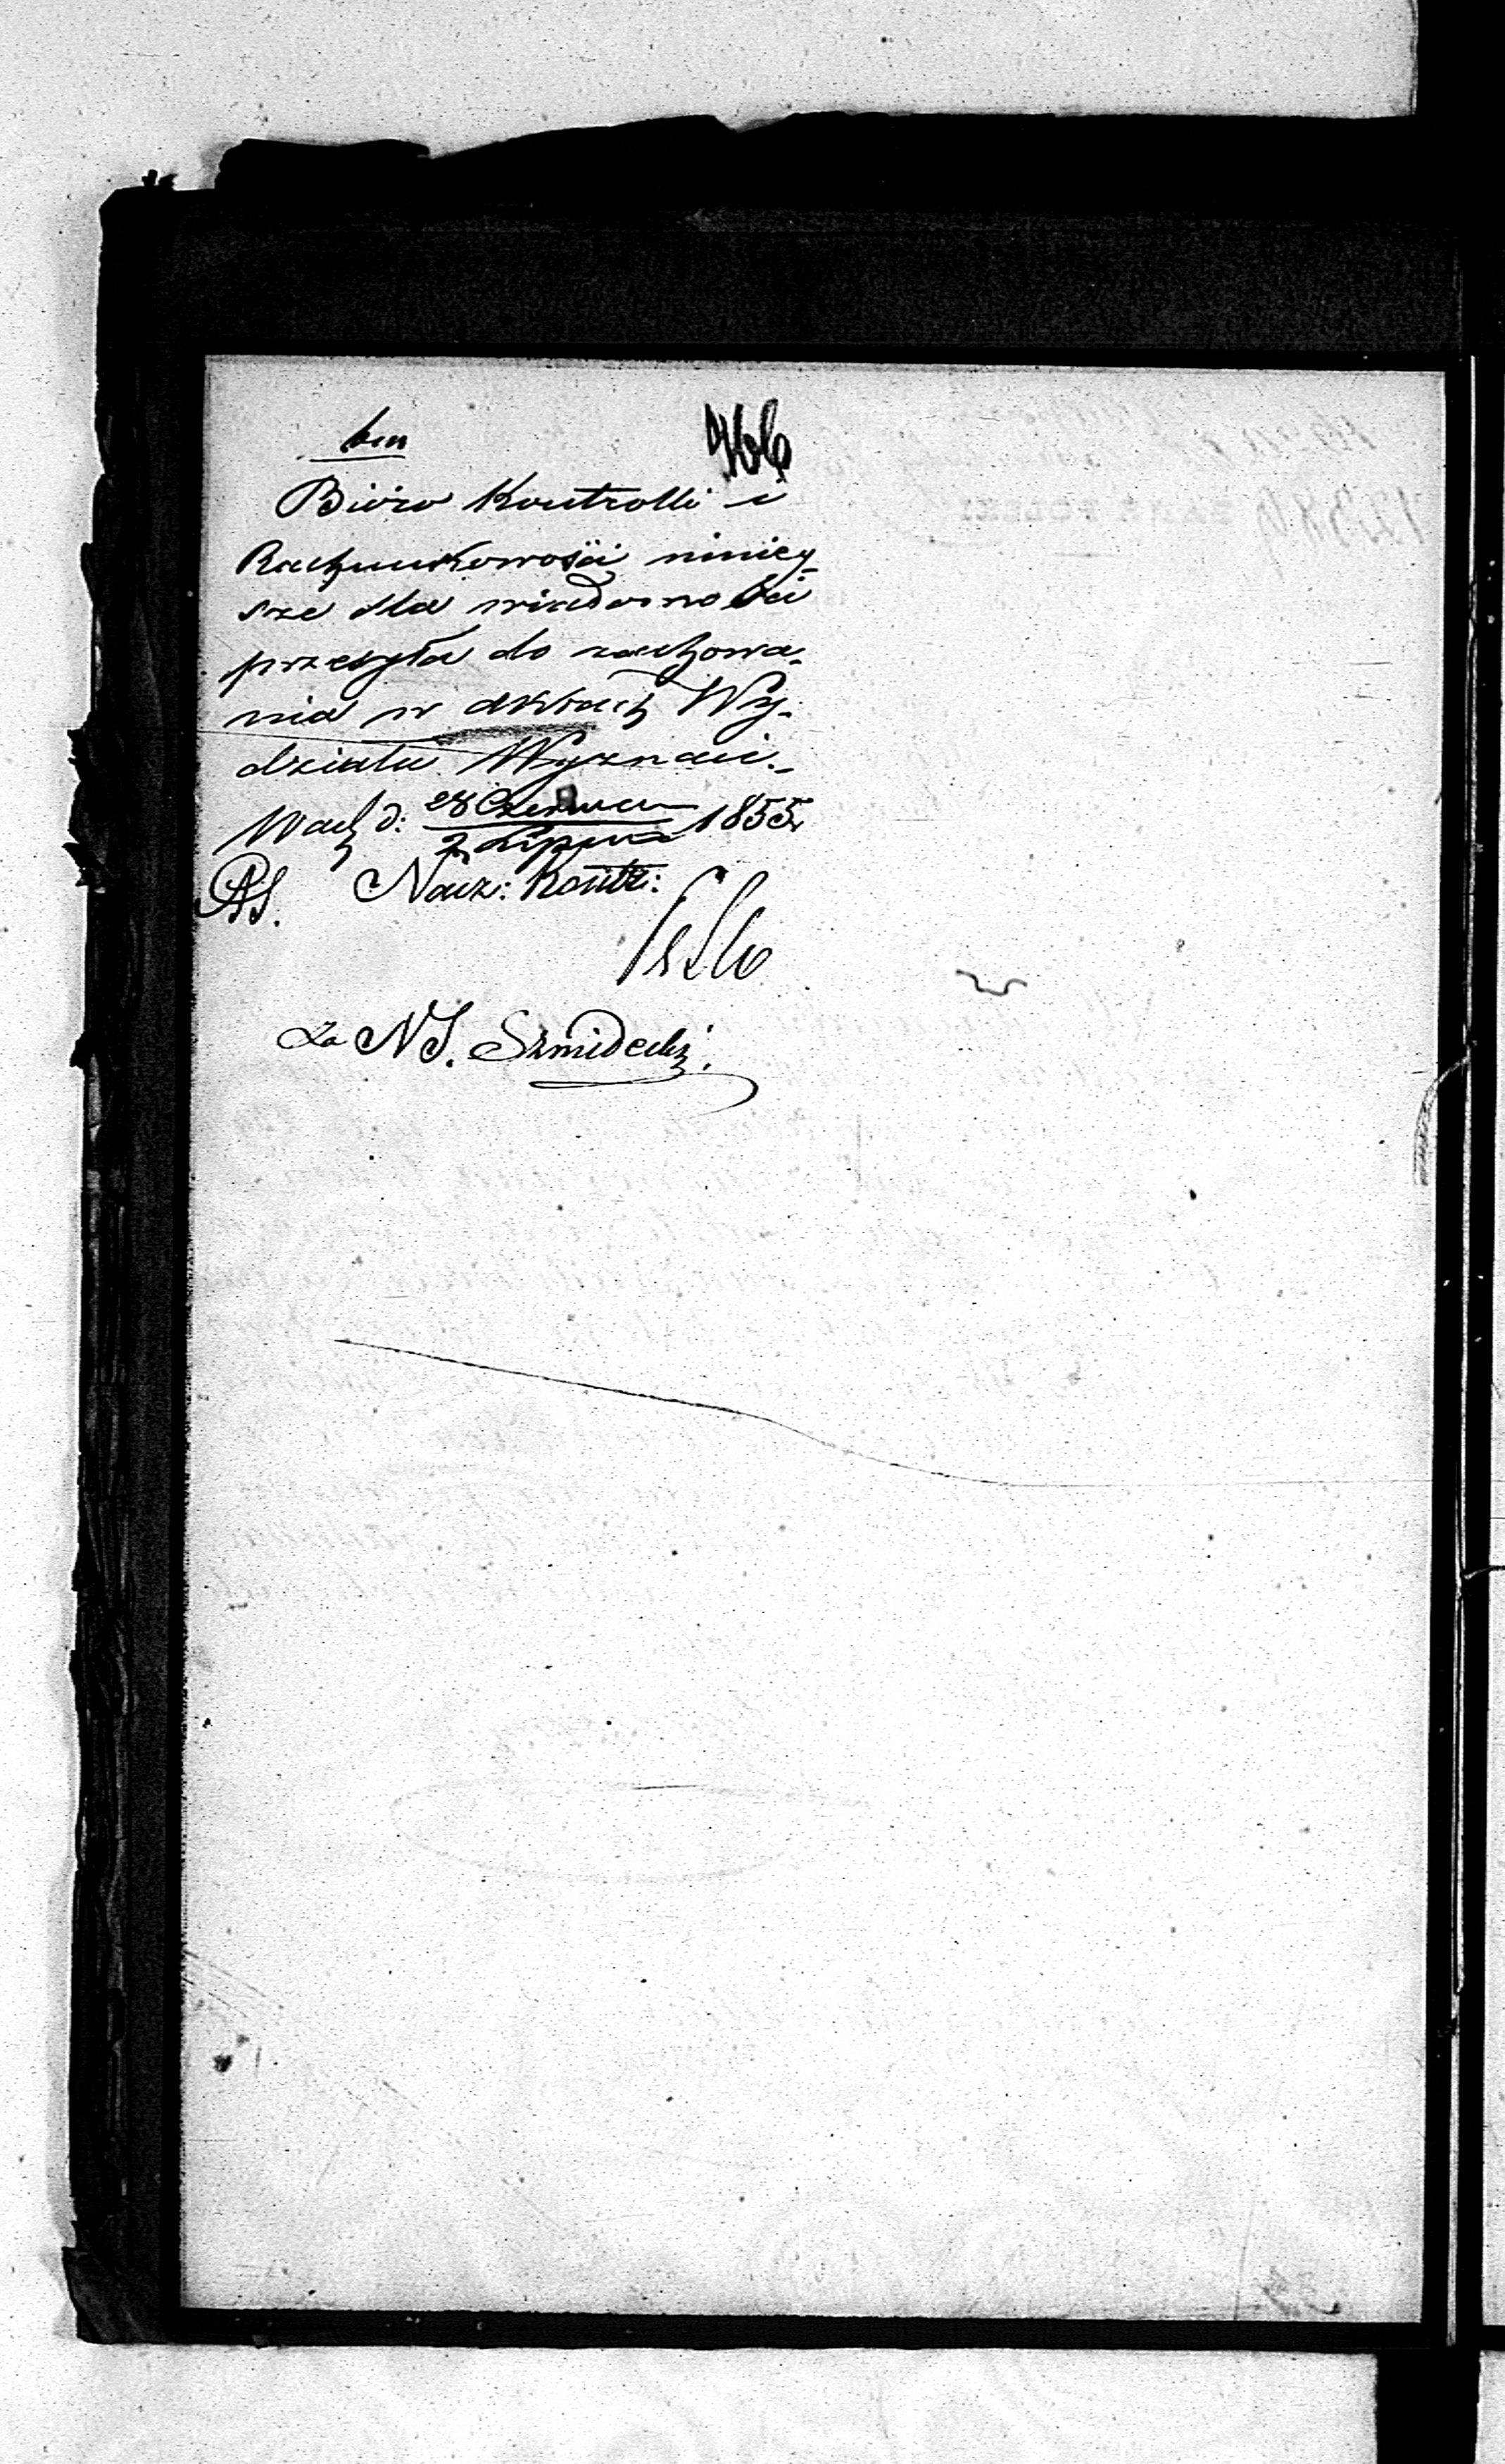 Bióro Kontrolli i
Rachunkowości niniey-
sze dla wiadomości
przesyła do zachowa-
nia w aktach Wy-
działu Wyznań.
d: 28 Czerwca
2 Lipca 1855
Nacz: Kontr:
Za N S. Szmidecki.